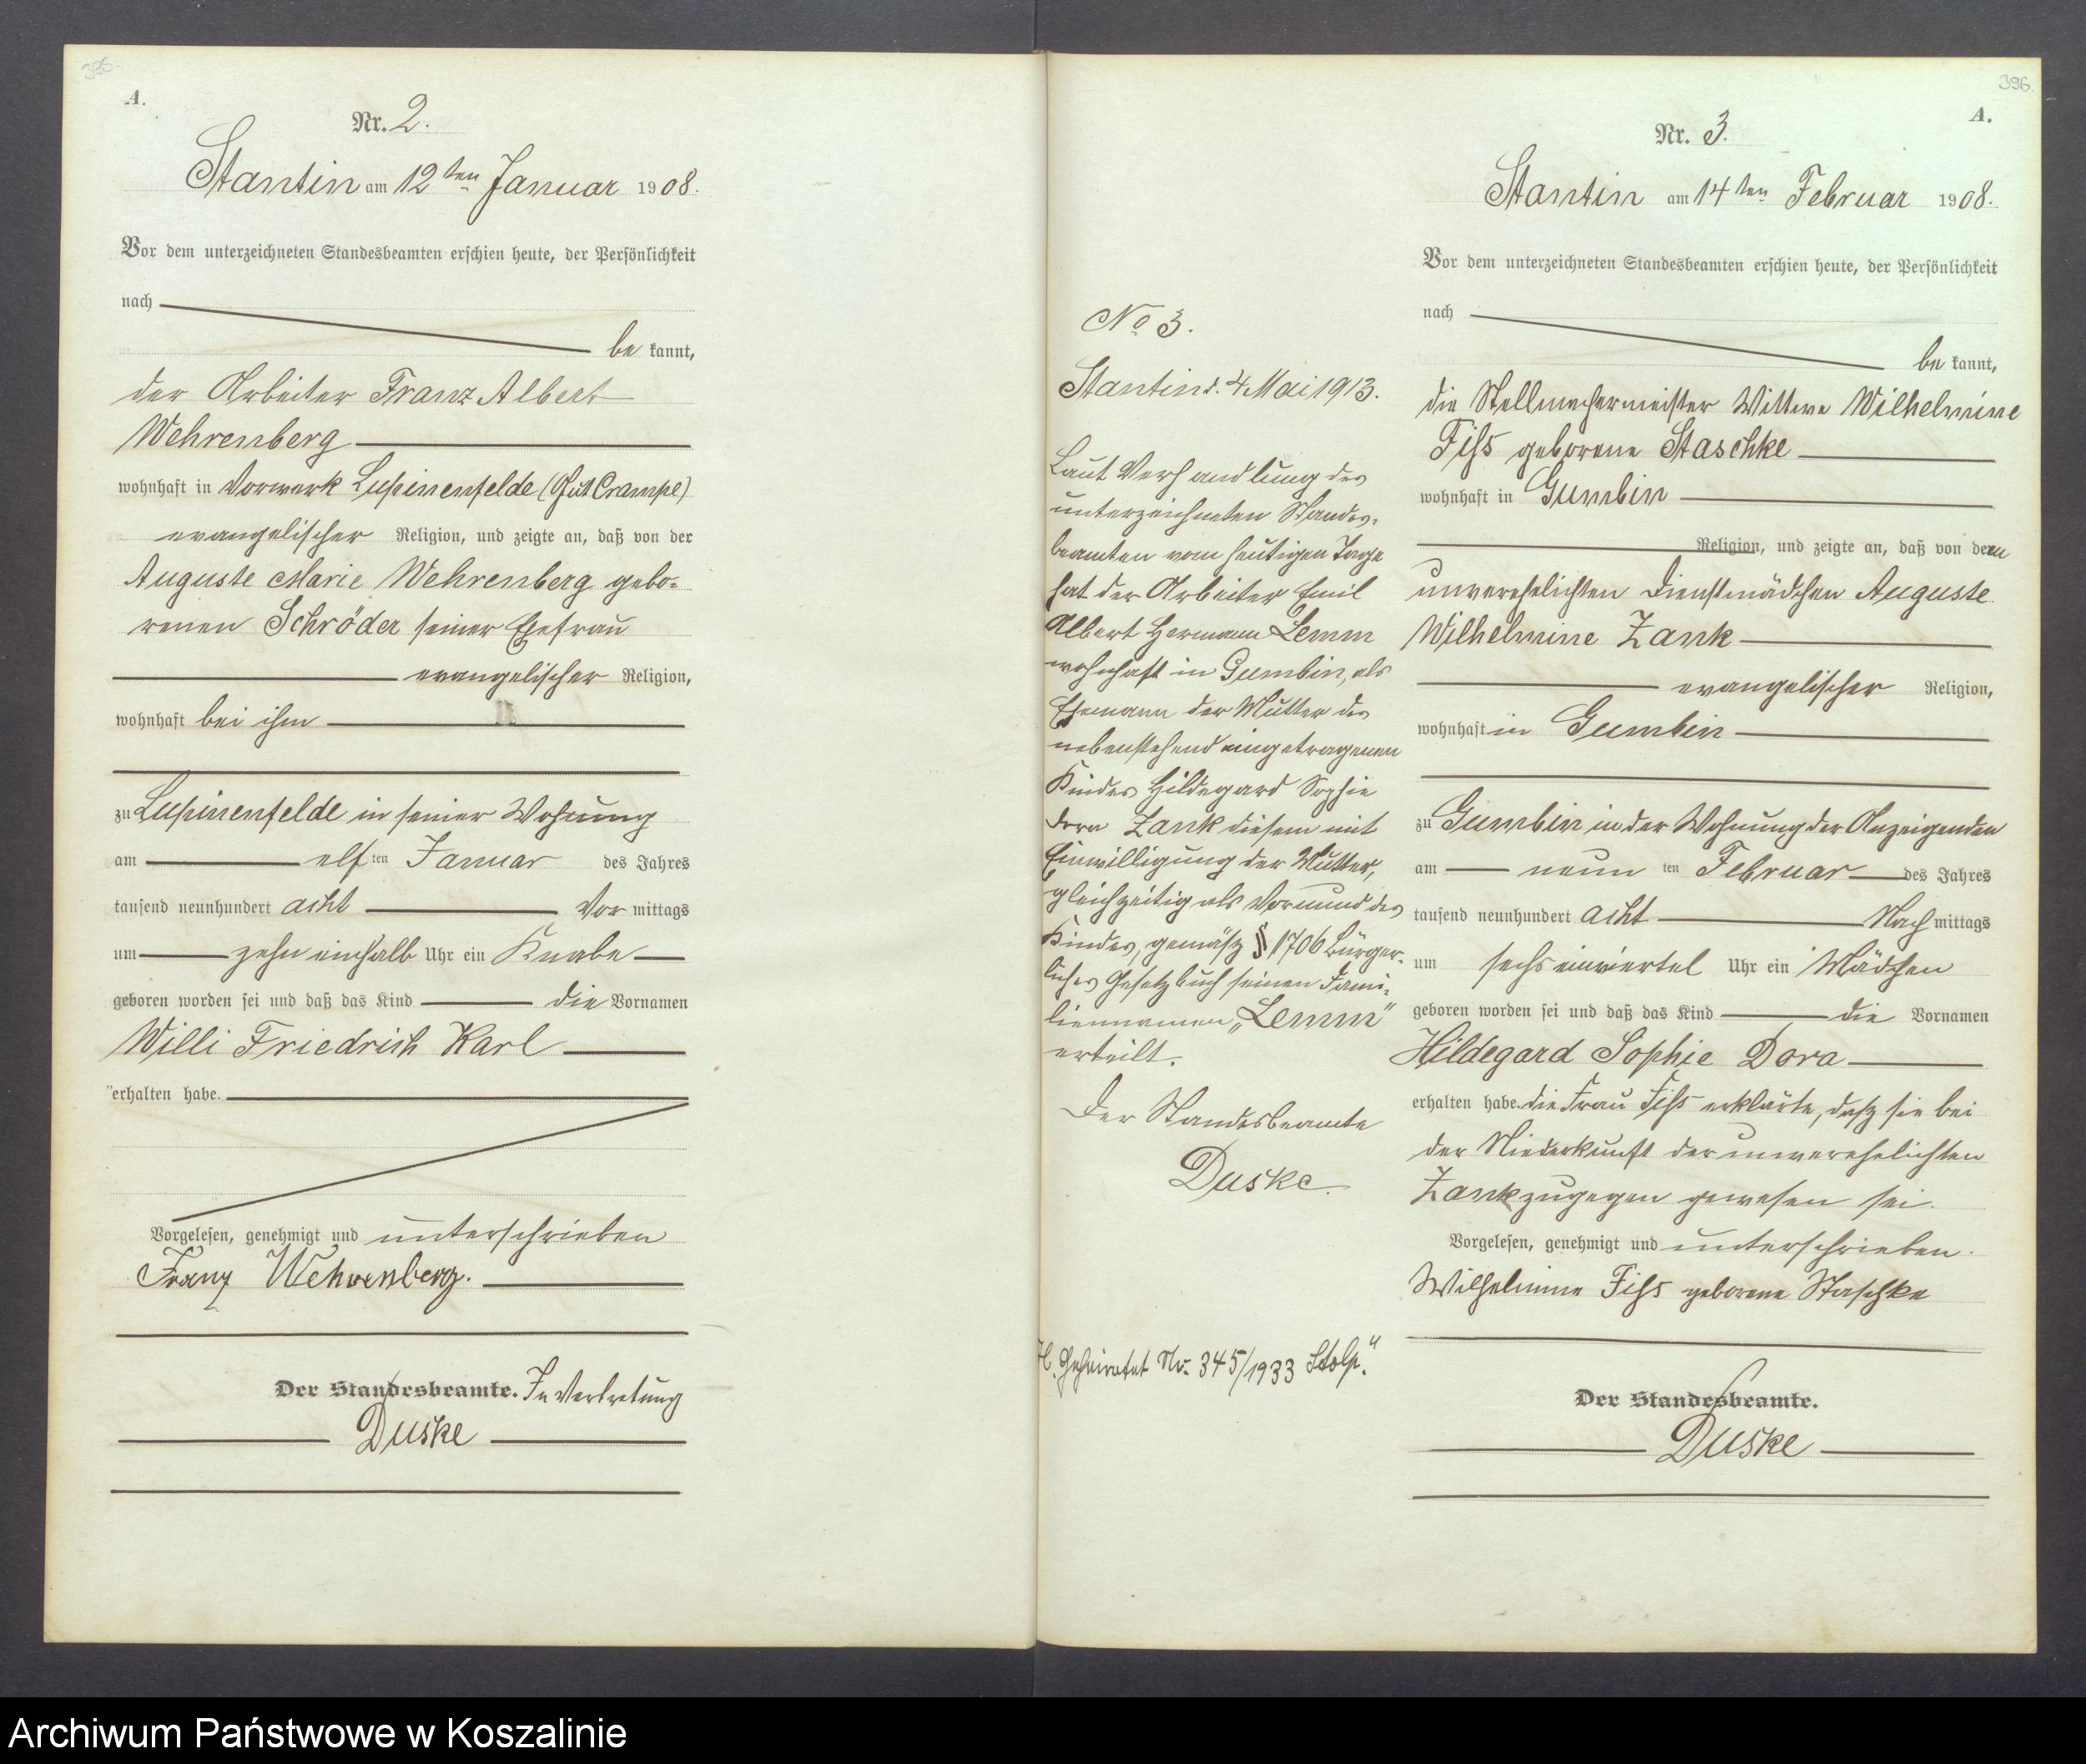 395.
A.
Nr. 2.
Stantin am 12ten Januar 1908.
Vor dem unterzeichneten Standesbeamten erschien heute, der Persönlichkeit
nach
be kannt,
der Arbeiter Franz Albert
Wehrenberg
wohnhaft in Vorwerk Lupinenfelde (Gut Crampe)
evangelischer Religion, und zeigte an, daß von der
Auguste Marie Wehrenberg gebo-
renen Schröder seiner Ehefrau
evangelischer Religion,
wohnhaft bei ihm
zu Lupinenfelde in seiner Wohnung
am elf ten Januar des Jahres
tausend neunhundert acht Vor mittags
um zehn einhalb Uhr ein Knabe
geboren worden sei und daß das Kind die Vornamen
Willi Friedrich Karl
erhalten habe.
Vorgelesen, genehmigt und unterschrieben
Franz Wehrenberg.
Der Standesbeamte. In Vertretung
Duske
No 3.
Stantin d. 4 Mai 1913.
Laut Verhandlung des
unterzeichneten Standes-
beamten vom heutigen Tage
hat der Arbeiter Emil
Albert Hermann Lemm
wohnhaft in Gumbin, als
Ehemann der Mutter des
nebenstehend eingetragenen
Kindes Hildegard Sophie
Dora Zank diesem mit
Einwilligung der Mutter,
gleichzeitig als Vormund des
Kindes, gemäß § 1706 Bürger-
liches Gesetzbuch seinen Fami-
liennamen „Lemm"
erteilt.
Der Standesbeamte
Duske.
H. Geheiratet Nr. 345/1933 Stolp."
396.
A.
Nr. 3.
Stantin am 14ten Februar 1908.
Vor dem unterzeichneten Standesbeamten erschien heute, der Persönlichkeit
nach
be kannt,
die Stellmachermeister Wittwe Wilhelmine
Fihs geborene Staschke
wohnhaft in Gumbin
Religion, und zeigte an, daß von der
unverehelichten Dienstmädchen Auguste
Wilhelmine Zank
evangelischer Religion,
wohnhaft in Gumbin
zu Gumbin in der Wohnung der Anzeigenden
am neun ten Februar des Jahres
tausend neunhundert acht Nach mittags
um sechs einviertel Uhr ein Mädchen
geboren worden sei und daß das Kind die Vornamen
Hildegard Sophie Dora
erhalten habe. die Frau Fihs erklärte, daß sie bei
der Niederkunft der unverehelichten
Zank zugegen gewesen sei.
Vorgelesen, genehmigt und unterschrieben.
Wilhelmine Fihs geborene Staschke
Der Standesbeamte.
Duske
Archiwum Państwowe w Koszalinie